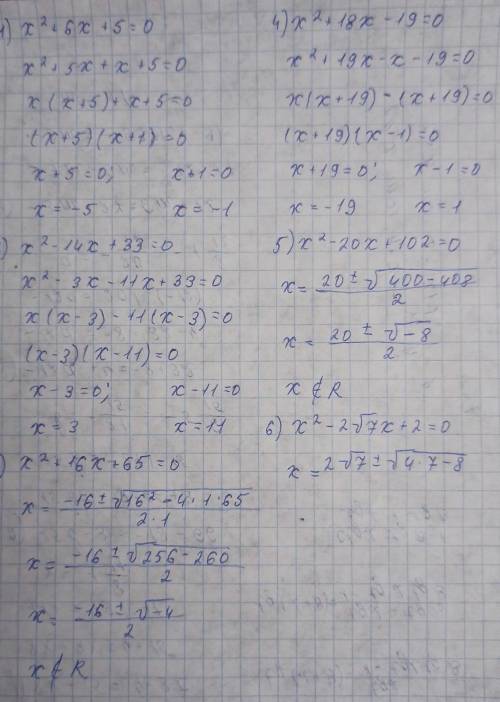 1) x² + 6x + 5 = 0
x² + 5x + x + 5 = 0
x (x+5) + x + 5 = 0
(x+5) (x+1) = 0
x + 5 = 0; x + 1 = 0
x = -5 x = -1
) x² - 14x + 33 = 0
x² - 3x - 11x + 33 = 0
x (x - 3) - 11 (x - 3) = 0
(x-3) (x - 11) = 0
x - 3 = 0; x - 11 = 0
x = 3 x = 11
) x² + 16x + 65 = 0
x = (-16 ± √(16² - 4·1·65)) / (2·1)
x = (-16 ± √(256 - 260)) / 2
x = (-16 ± √(-4)) / 2
x ∉ R
4) x² + 18x - 19 = 0
x² + 19x - x - 19 = 0
x (x + 19) - (x + 19) = 0
(x+19) (x - 1) = 0
x + 19 = 0; x - 1 = 0
x = -19 x = 1
5) x² - 20x + 102 = 0
x = (20 ± √(400 - 408)) / 2
x = (20 ± √(-8)) / 2
x ∉ R
6) x² - 2√7x + 2 = 0
x = 2√7 ± √(4·7 - 8)